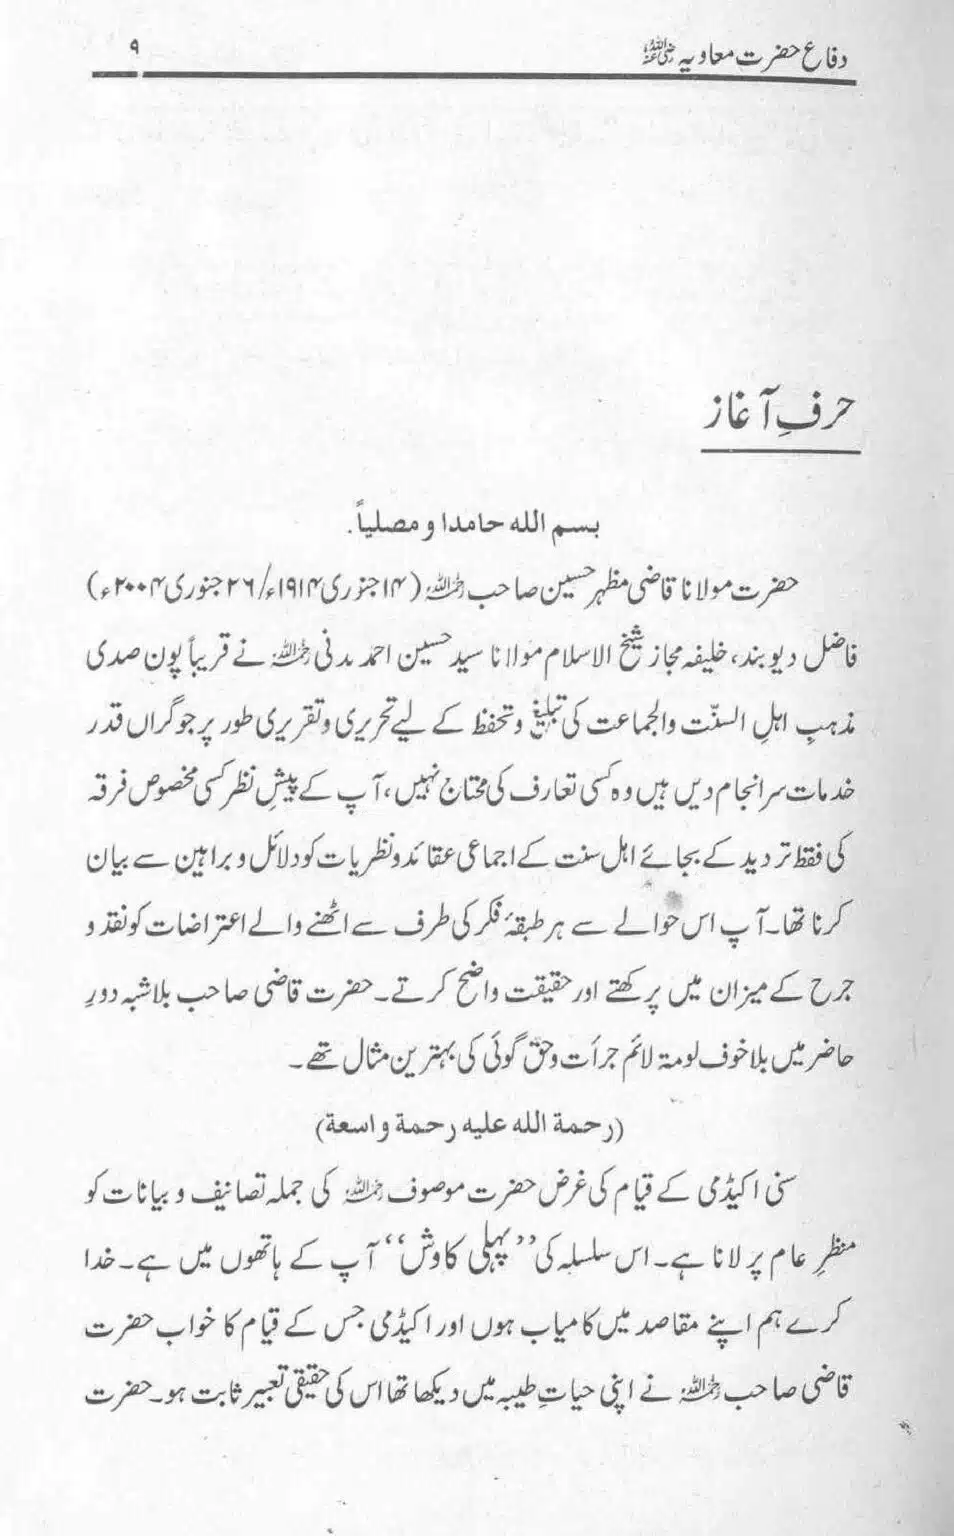 دفاع حضرت معاویہ رضی اللہ عنہ
۹
حرفِ آغاز
بسم الله حامدا و مصلیاً.
حضرت مولانا قاضی مظہر حسین صاحب رحمہ اللہ (۱۴ جنوری ۱۹۱۴ء/۲۶ جنوری ۲۰۰۴ء)
فاضل دیوبند، خلیفہ مجاز شیخ الاسلام مولانا سید حسین احمد مدنی رحمہ اللہ نے قریباً پون صدی
مذہبِ اہلِ السنّت والجماعت کی تبلیغ و تحفظ کے لیے تحریری و تقریری طور پر جو گراں قدر
خدمات سرانجام دیں ہیں وہ کسی تعارف کی محتاج نہیں، آپ کے پیشِ نظر کسی مخصوص فرقہ
کی فقط تردید کے بجائے اہل سنت کے اجماعی عقائد و نظریات کو دلائل و براہین سے بیان
کرنا تھا۔ آپ اس حوالے سے ہر طبقۂ فکر کی طرف سے اٹھنے والے اعتراضات کو نقد و
جرح کے میزان میں پرکھتے اور حقیقت واضح کرتے۔ حضرت قاضی صاحب بلاشبہ دورِ
حاضر میں بلاخوف لومۃ لائم جرأت و حق گوئی کی بہترین مثال تھے۔
(رحمة الله عليه رحمة واسعة)
سنی اکیڈمی کے قیام کی غرض حضرت موصوف رحمہ اللہ کی جملہ تصانیف و بیانات کو
منظرِ عام پر لانا ہے۔ اس سلسلہ کی ’’پہلی کاوش‘‘ آپ کے ہاتھوں میں ہے۔ خدا
کرے ہم اپنے مقاصد میں کامیاب ہوں اور اکیڈمی جس کے قیام کا خواب حضرت
قاضی صاحب رحمہ اللہ نے اپنی حیاتِ طیبہ میں دیکھا تھا اس کی حقیقی تعبیر ثابت ہو۔ حضرت